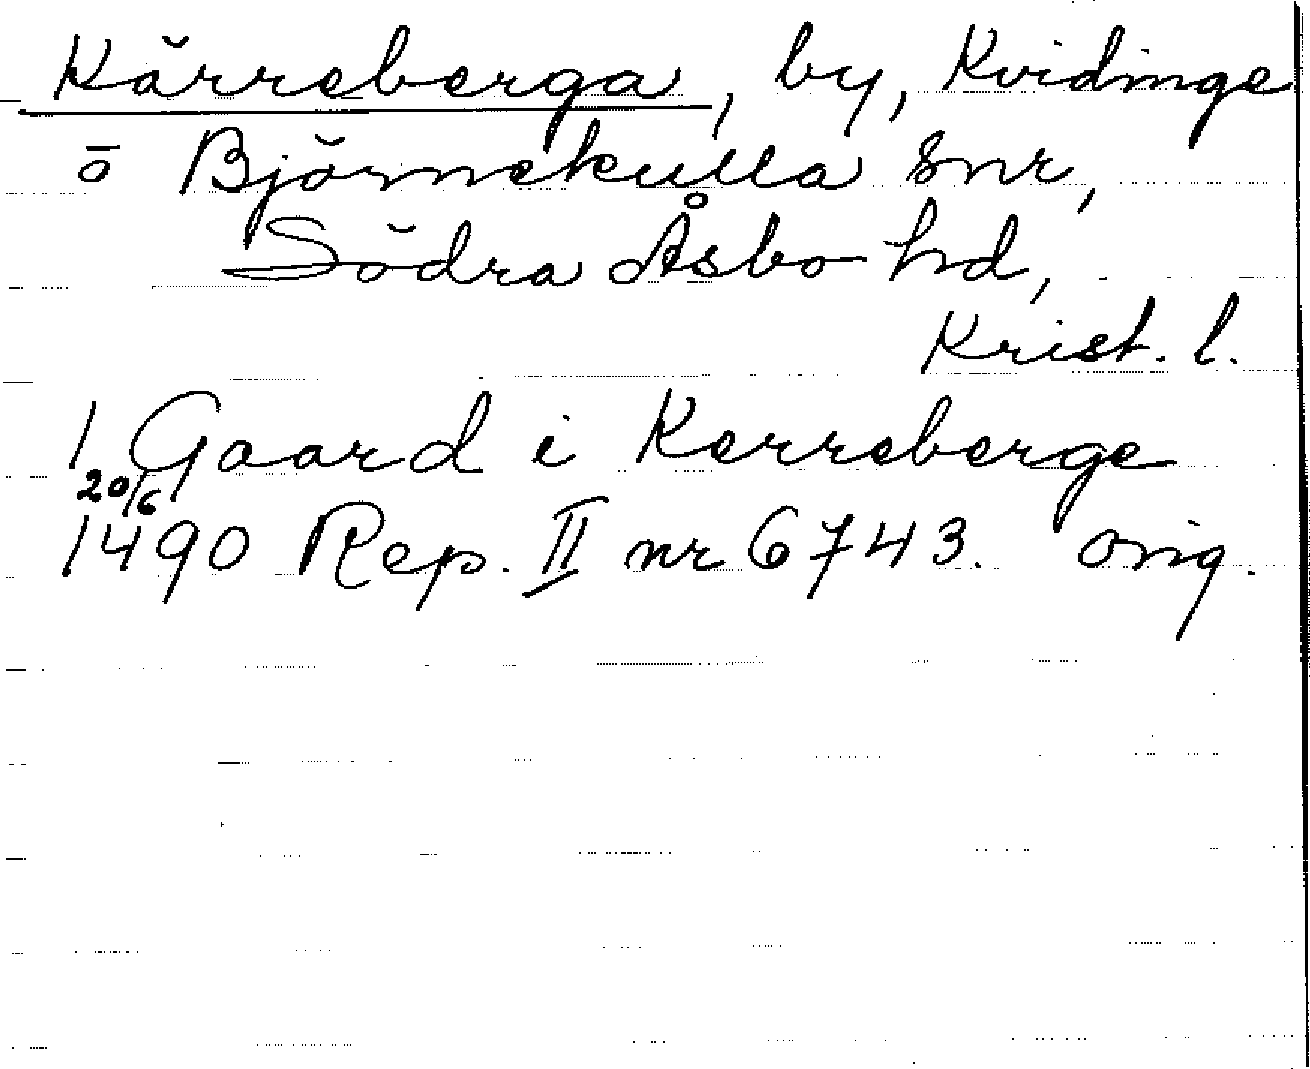 Kärreberga, by, Kvidinge
o Björnekulla snr,
Södra Åsbo hd,
Krist. l.
1 Gaard i Kerreberge
20/6
1490 Rep. II nr 6743. Orig.